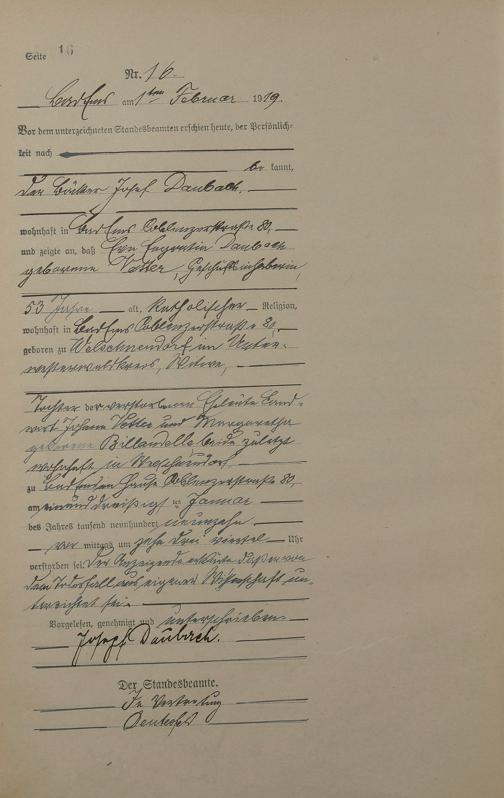 Seite 16
Nr. 16.
Bad Ems am 1ten Februar 1919.
Vor dem unterzeichneten Standesbeamten erschien heute, der Persönlich-
keit nach
be kannt,
der Bäcker Josef Daubach,
wohnhaft in Bad Ems Coblenzerstraße 80,
und zeigte an, daß Daubach
geborene Vetter, Geschäftsinhaberin,
53 Jahre alt, katholischer Religion,
wohnhaft in Bad Ems Coblenzerstraße 80,
geboren zu Welschneudorf im Unter-
westerwaldkreis, Witwe,
Tochter der verstorbenen Eheleute Land-
wirt Johann Vetter und Margaretha
geborene beide zuletzt
wohnhaft in Welschneudorf,
zu Bad Ems im Hause Coblenzerstraße 80,
am einund dreißigsten Januar
des Jahres tausend neunhundert neunzehn
vor mittags um zehn drei viertel Uhr
verstorben sei. Der Anzeigende erklärte daß er von
dem Todesfall aus eigener Wissenschaft un-
terrichtet sei.
Vorgelesen, genehmigt und unterschrieben
Joseph Daubach.
Der Standesbeamte.
In Vertretung